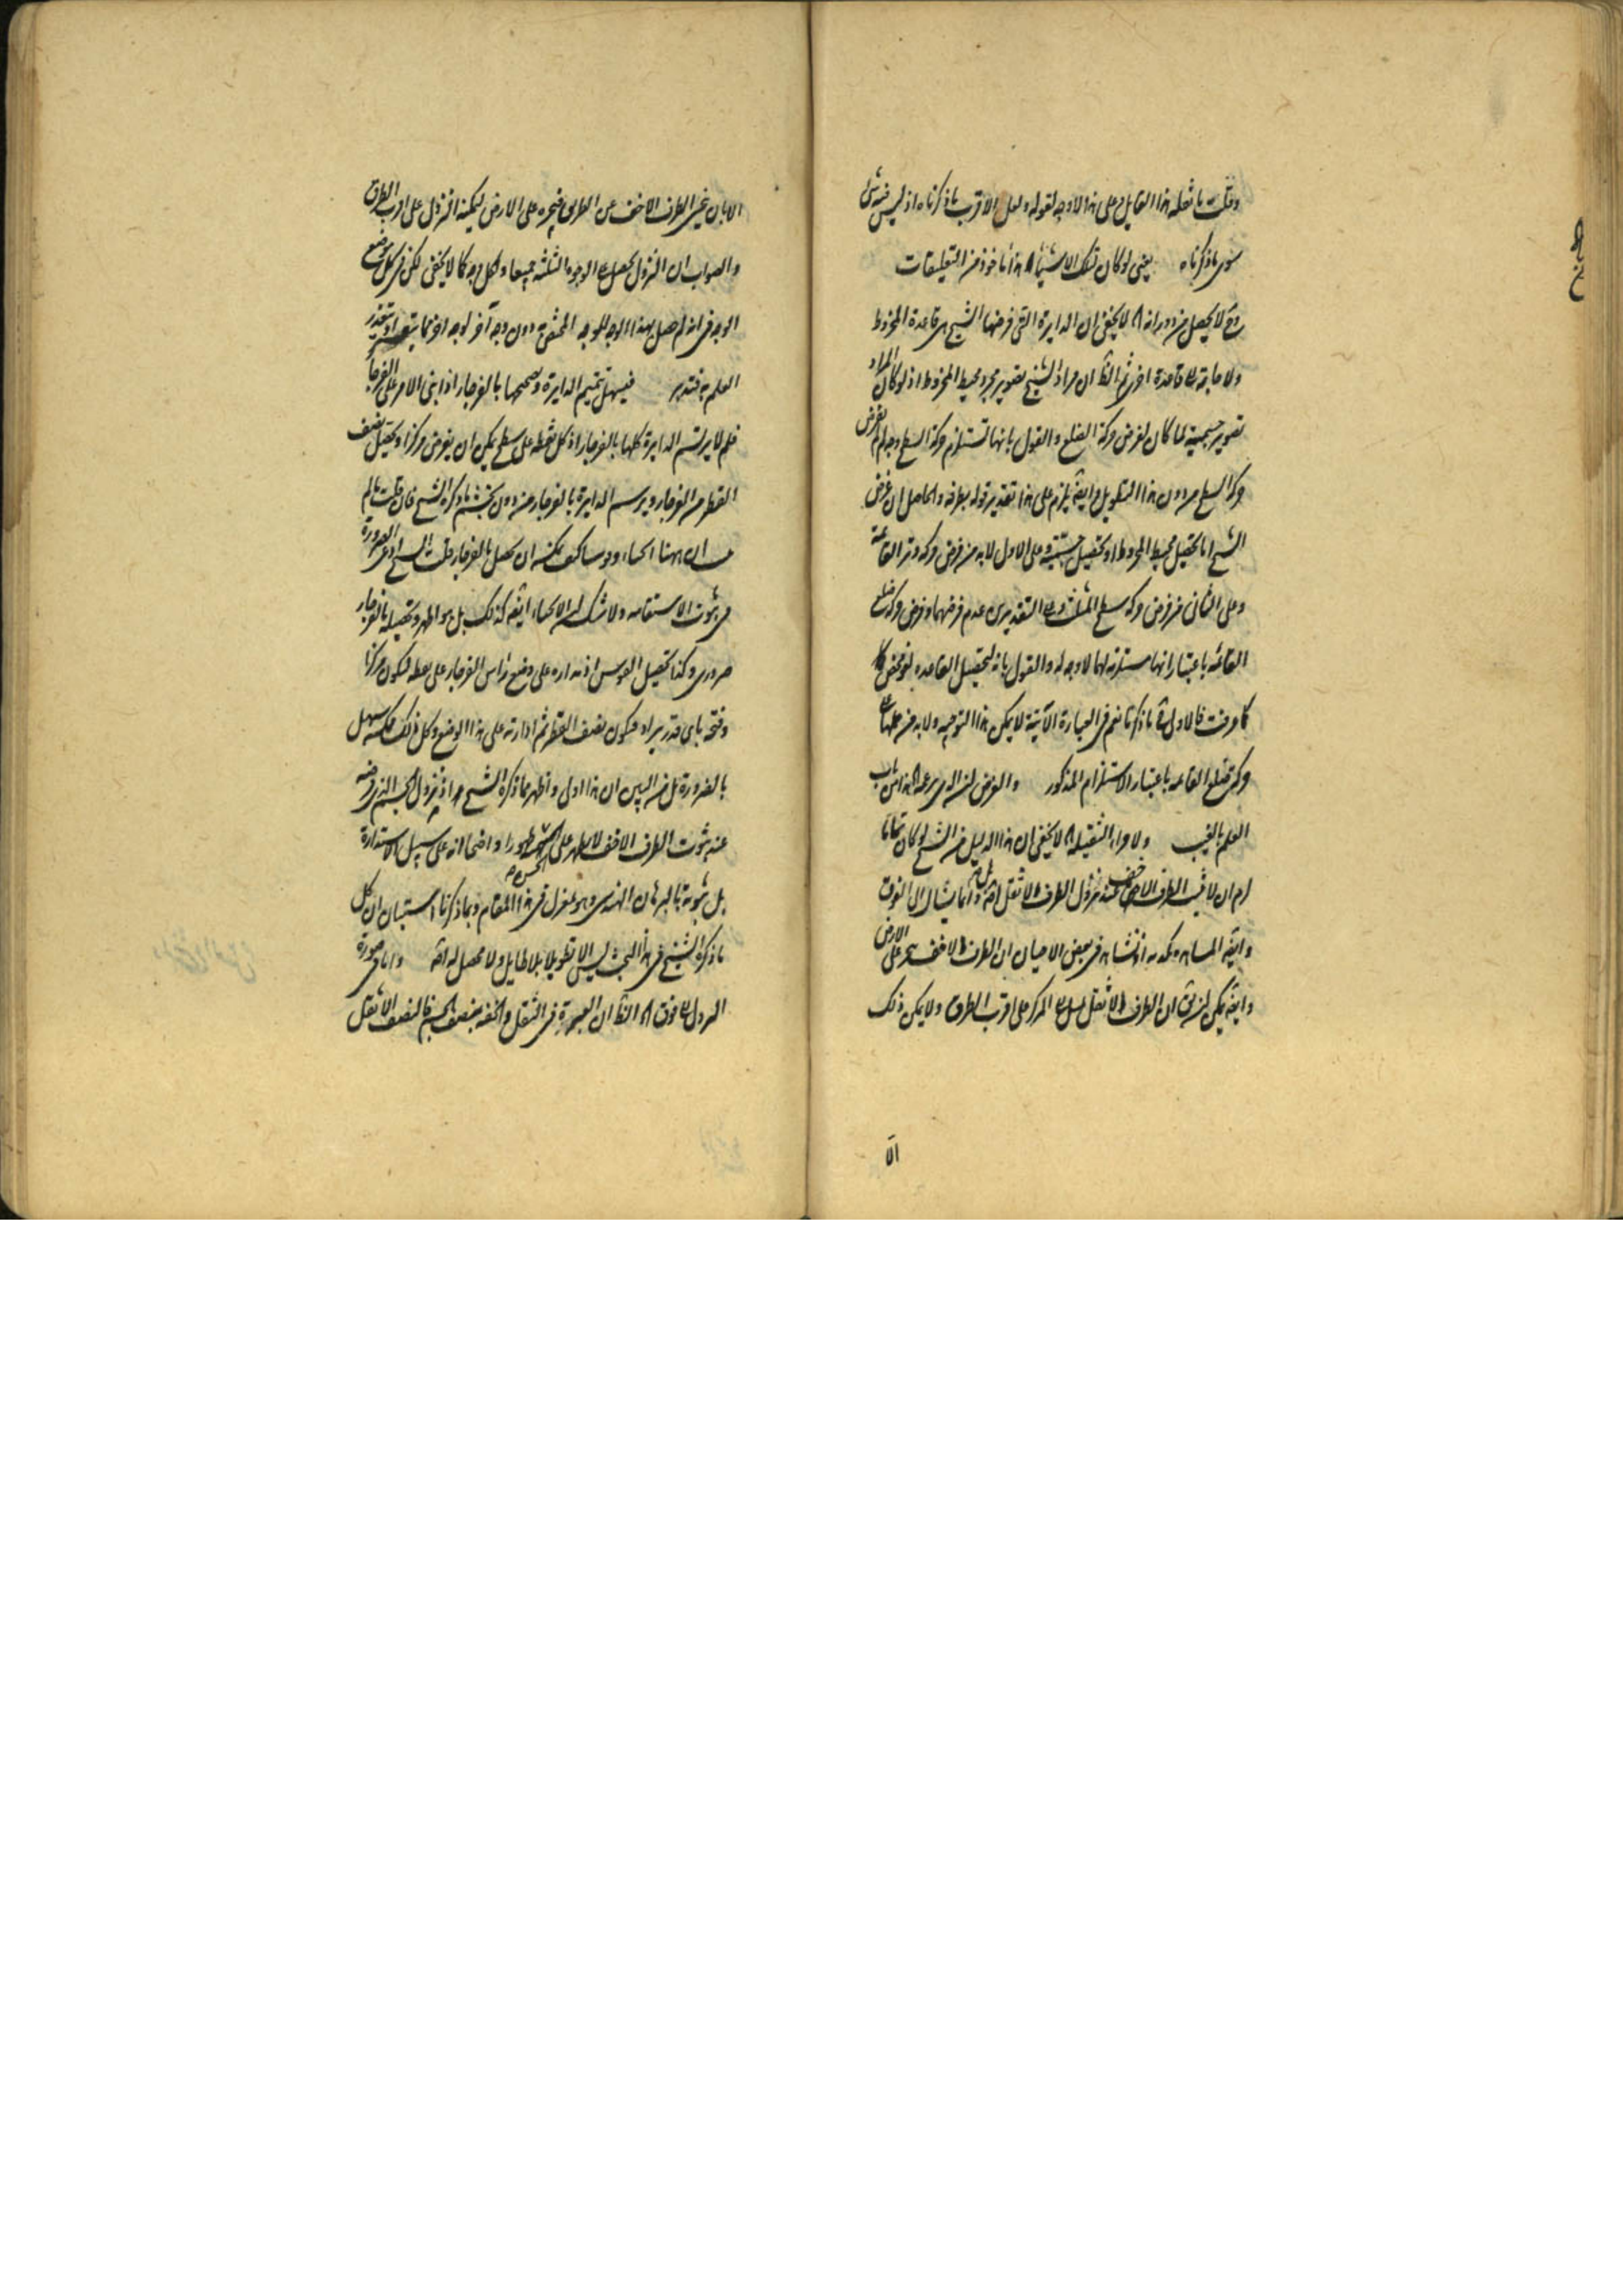 وقلت ما نقله هذا القايل وعلى هذا لا وجه لقوله ولعل الاقرب ما ذكرناه اذ ليس فيه شئ
سوى ما ذكرناه يعنى لو كان تلك الاشياء هذا مأخوذ من التعليقات
لا يحصل من دورانه لا يخفى ان الدايرة التى فرضها الشيخ هى قاعدة المخروط
ولا حاجة الى قاعدة اخرى ثم الظ ان مراد الشيخ تصوير مجرد محيط المخروط اذ لو كان المراد
تصوير جسميته لما كان لفرض حركة الضلع والقول بانها تستلزم حركة السطح وجه لم يفرض
حركة السطح من دون هذا التطويل وايضا يلزم على هذا تقدير قوله بطرفه والحاصل ان غرض
الشيخ اما تحصيل محيط المخروط او تحصيل جسميته وعلى الاول لا بد من فرض حركة وتر القائمة
وعلى الثانى من فرض حركة سطح المثلث وعلى التقديرين عدم فرضهما وفرض حركة ضلع
القائمه باعتبار انها مستلزمة لهما لا وجه له والقول بانه لتحصيل القاعده لغو محض
كما عرفت فالاولى ما ذكرنا نعم فى العبارة الآتية لا يمكن هذا التوجيه ولا بد من حملها على
حركة ضلع القائمه باعتبار الاستلزام المذكور والغرض
العلم بالغيب ولامراء الثقيلة لا يخفى ان هذا الدليل من الشيخ لو كان تماما
لزم ان لا يثبت الطرف الاخف عند نزول الطرف الاثقل وانما يشال الى الفوق
وايضا المشاهدة تكذبه اذ نشاهد فى بعض الاحيان ان الطرف الاخف ينجر على الارض
وايضا يمكن ان يق ان الطرف الاثقل يميل الى المركز على اقرب الطرق ولا يمكن ذلك
الا
الا بان ينحى الطرف الاخف عن الطريق فيجره على الارض ليمكنه النزول على اقرب الطرق
والصواب ان النزول يحصل على الوجوه الثلثه جميعا ولكل وجه كما لا يخفى لكن فى كل موضع
الوجه فى انه لم حصل بهذا الوجه للوجه المحقق دون وجه آخر لوجه آخر مما يتعسر او يتعذر
العلم به فتدبر فيسهل تتميم الدايرة وتصحيحها بالفرجار اذا بنى الامر على الفرجار
فلم لا يرتسم الدايرة كلها بالفرجار اذ كل نقطه على سطح يمكن ان يفرض مركزا ويحصل نصف
القطر من الفرجار ويرسم الدايرة بالفرجار من دون تجشم ما ذكره الشيخ فان قلت ما لم
ان ههنا انحناء وقوسا كيف يمكنه ان يحصل بالفرجار قلت الشيخ ادعى الضرورة
فى ثبوت الاستقامه ولا شك ان الانحناء ايضا كذلك بل هو اظهر وتحصيله بالفرجار
ضرورى وكذا تحصيل القوس اذ مداره على وضع رأس الفرجار على نقطه فيكون مركزا
وفتحه باى قدر يراد فيكون نصف القطر ثم ادارته على هذا الوضع وكل ذلك ممكن سهل
بالضرورة بل من البين ان هذا اولى واظهر مما ذكره الشيخ اذ نزول الجسم الذى فرضه
عند ثبوت الطرف الاخف لا يظهر على الحس ظهورا واضحا انه على سبيل الاستدارة
بل ثبوته بالبرهان الهندسى وهو بمعزل فى هذا المقام وبما ذكرنا استبان ان كل
ما ذكره الشيخ فى هذا البحث ليس الا تطويلا بلا طايل ولا محصل له واما فى صورة
النزول الى فوق الظ ان العبرة فى الثقل والخفه بنصف الجسم فالنصف الاثقل